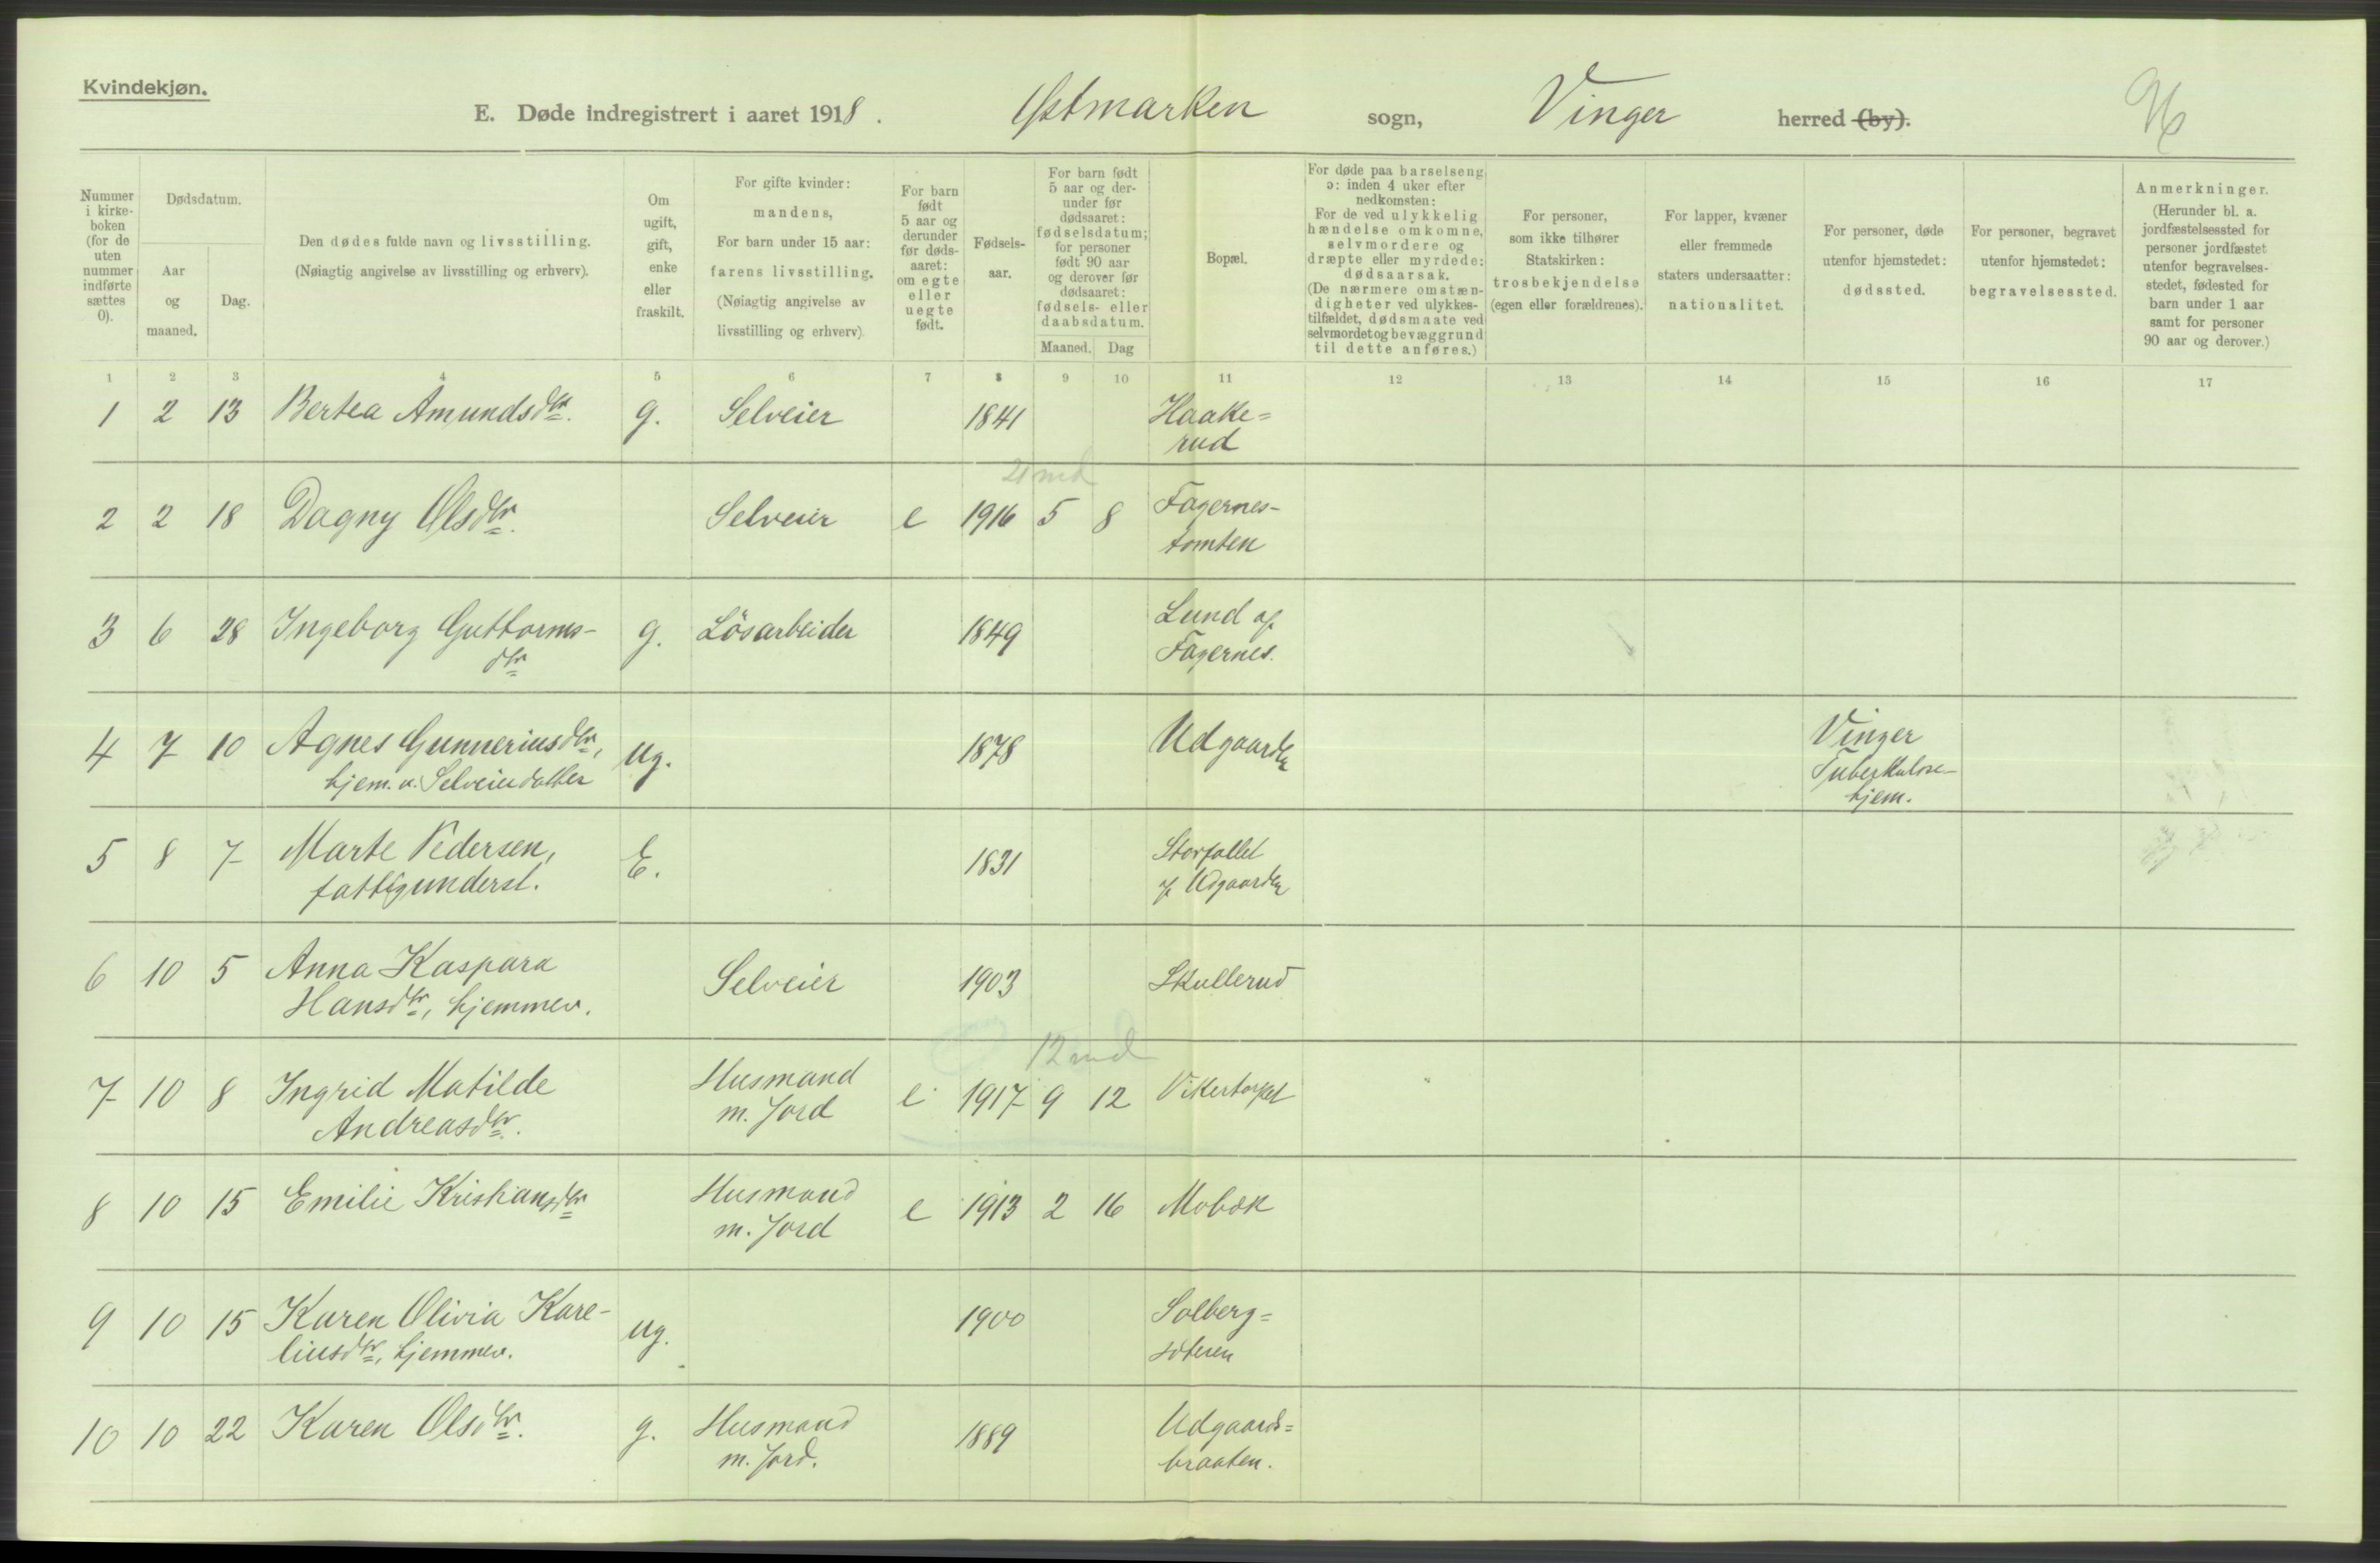 Kvindekjøn.
E. Døde indregistrert i aaret 1918. Østmarken sogn, Vinger herred (by).
Nummer i kirke-boken (for de uten nummer indførte sættes 0).
Dødsdatum.
Aar og maaned.
Dag.
Den dødes fulde navn og livsstilling.
(Nøiagtig angivelse av livsstilling og erhverv).
Om ugift, gift, enke eller fraskilt.
For gifte kvinder: mandens,
For barn under 15 aar: farens livsstilling.
(Nøiagtig angivelse av livsstilling og erhverv)
For barn født 5 aar og derunder før døds-aaret: om egte eller uegte født.
Fødsels-aar.
For barn født 5 aar og der-under før dødsaaret: fødselsdatum; for personer født 90 aar og derover før dødsaaret: fødsels- eller daabsdatum.
Maaned. Dag
Bopæl.
For døde paa barselseng ɔ: inden 4 uker efter nedkomsten:
For de ved ulykkelig hændelse omkomne, selvmordere og dræpte eller myrdede: dødsaarsak.
(De nærmere omstæn-digheter ved ulykkes-tilfældet, dødsmaate ved selvmordet og bevæggrund til dette anføres.)
For personer, som ikke tilhører Statskirken: trosbekjendelse (egen eller forældrenes).
For lapper, kvæner eller fremmede staters undersaatter: nationalitet.
For personer, døde utenfor hjemstedet: dødssted.
For personer, begravet utenfor hjemstedet: begravelsessted.
Anmerkninger.
(Herunder bl. a. jordfæstelsessted for personer jordfæstet utenfor begravelses-stedet, fødested for barn under 1 aar samt for personer 90 aar og derover.)
1 2 3 4 5 6 7 8 9 10 11 12 13 14 15 16 17
1 2 13 Bertea Amundsdtr. g. Selveier 1841 Haake=
rud
21 md
2 2 18 Dagny Olsdtr. Selveier e 1916 5 8 Fagernes-
tomten
3 6 28 Ingeborg Guttorms- g. Lösarbeider 1849 Lund af
dtr Fagernes.
4 7 10 Agnes Gunneriusdtr, ug. 1878 Udgaarden Vinger
hjem. v. Selveierdatter Tuberkulose-
hjem.
5 8 7 Marte Pedersen, E. 1831 Storfallet
fattigunderst. af Udgaarden
6 10 5 Anna Kaspara Selveier 1903 Skullerud
Hansdtr, hjemmev.
12 md
7 10 8 Ingrid Matilde Husmand e 1917 9 12 Vikertorpet
Andreasdtr. m. Jord
8 10 15 Emilie Kristiansdtr Husmand e 1913 2 16 Mobæk
m. Jord
9 10 15 Karen Olivia Kare- ug. 1900 Solberg=
liusdtr, hjemmev. sæteren
10 10 22 Karen Olsdtr. g. Husmand 1889 Udgaards=
m. Jord. braaten.